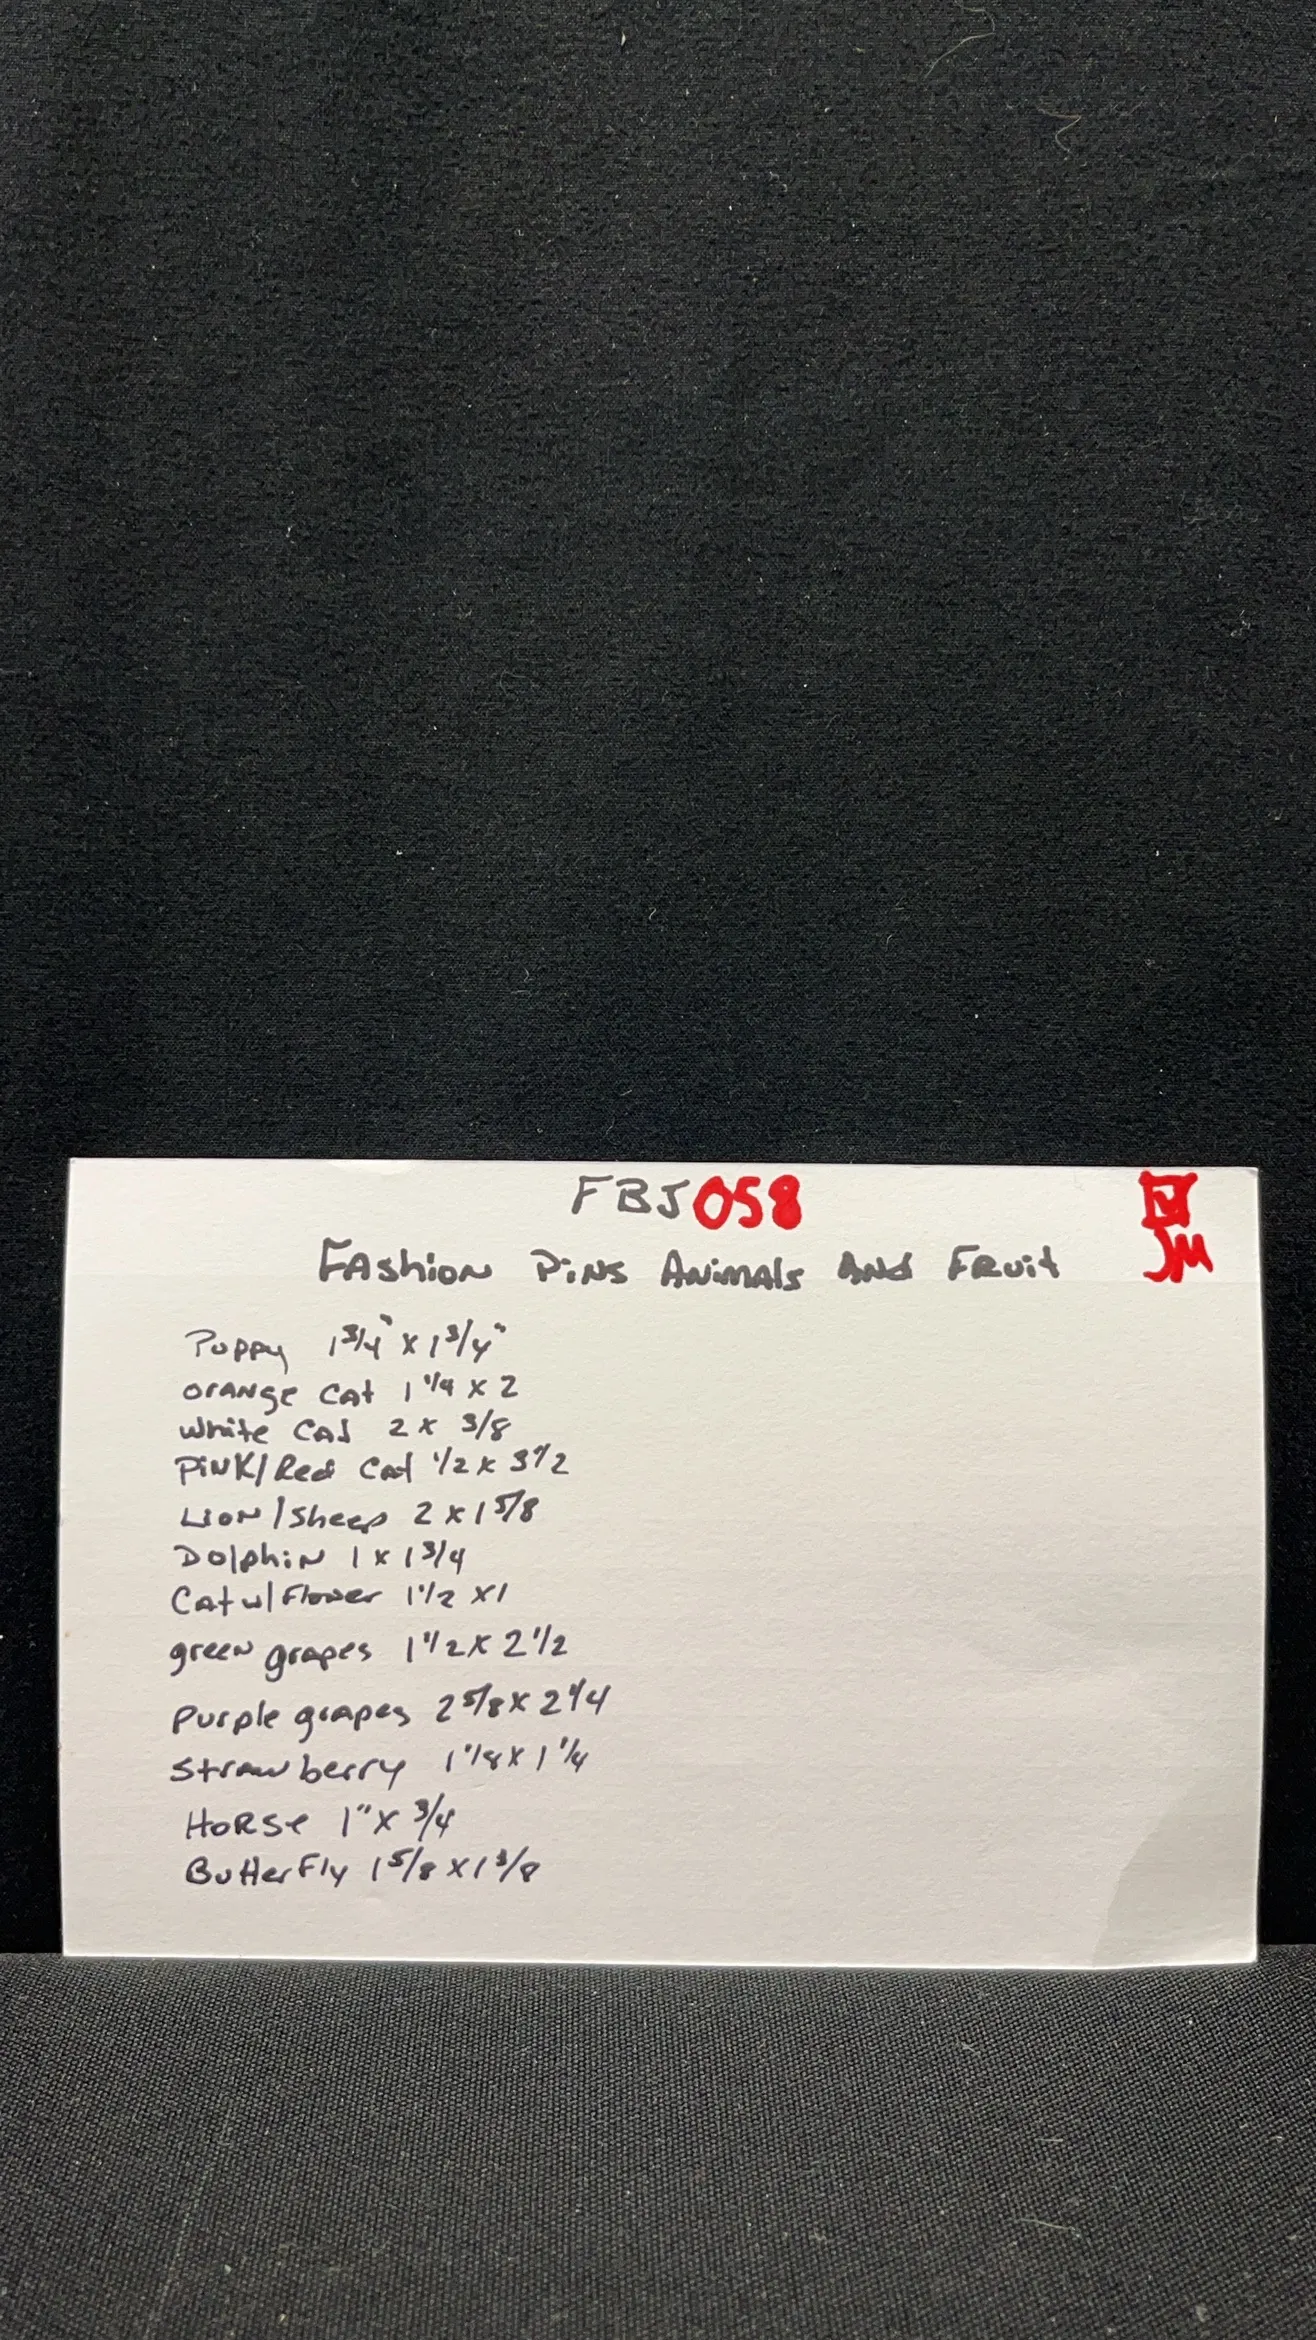 FBJ058
JM
Fashion Pins Animals And Fruit
Puppy 1 3/4" x 1 3/4"
orange cat 1 1/4 x 2
white cat 2 x 3/8
Pink/Red cat 1/2 x 3 1/2
Lion/Sheep 2 x 1 5/8
Dolphin 1 x 1 3/4
Cat w/Flower 1 1/2 x 1
green grapes 1 1/2 x 2 1/2
purple grapes 2 5/8 x 2 1/4
Strawberry 1 1/8 x 1 1/4
Horse 1" x 3/4
Butterfly 1 5/8 x 1 3/8